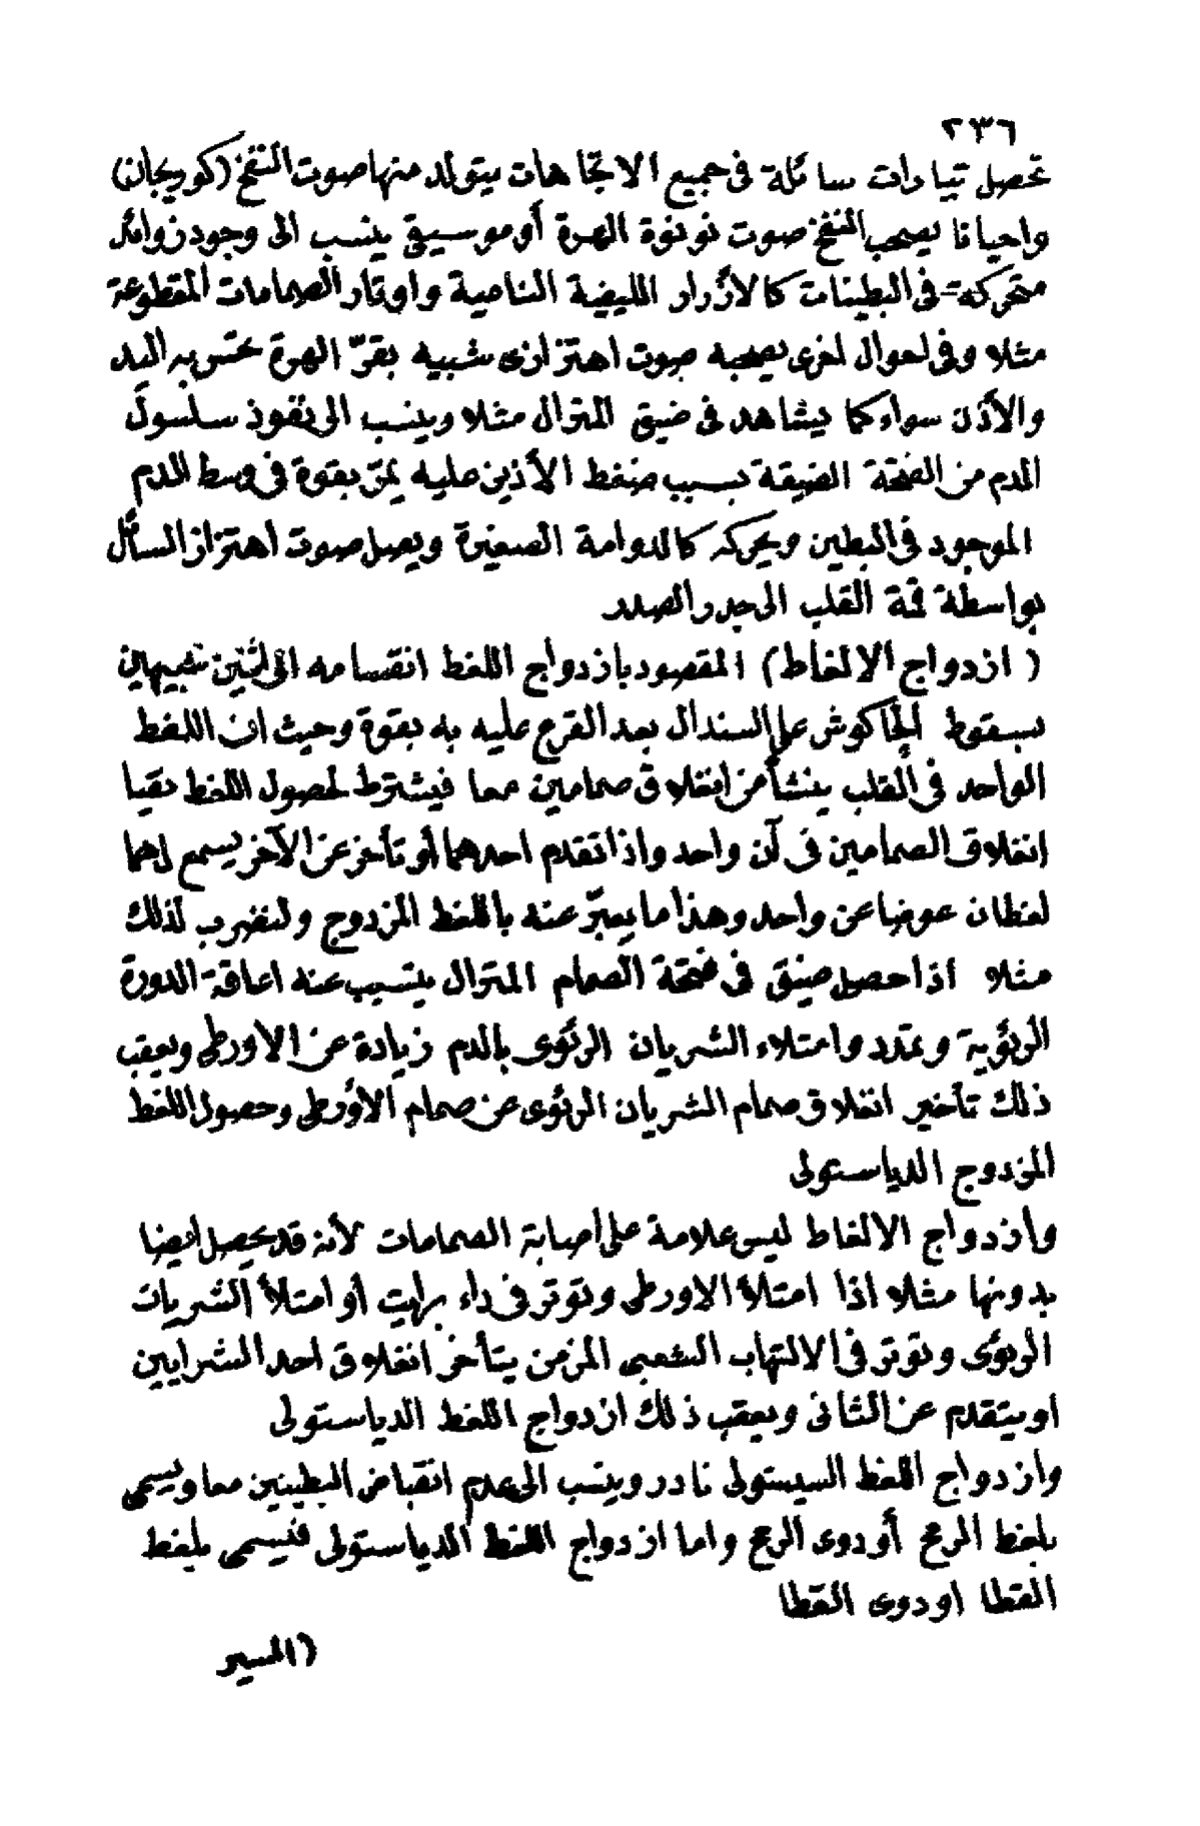 ٢٣٦
تحصل تيارات سائلة فى جميع الاتجاهات يتولد منها صوت النفخ (كوريجان)
واحيانا يصحب النفخ صوت نونوة الهرة أو موسيقى ينسب الى وجود زوائد
متحركة فى البطينات كالازرار الليفية النامية واوتار الصمامات المقطوعة
مثلا وفى احوال اخرى يصحبه صوت اهتزازى شبيه بقرّ الهرة تحس به اليد
والأذن سواء كما يشاهد فى ضيق المترال مثلا وينسب الى نفوذ سلسول
الدم من الفتحة الضيقة بسبب ضغط الأذين عليه يمر بقوة فى وسط الدم
الموجود فى البطين ويحركه كالدوامة الصغيرة ويصل صوت اهتزاز السائل
بواسطة قمة القلب الى جدر الصدر
(ازدواج الالغاط) المقصود بازدواج اللغط انقسامه الى اثنين شبيهين
بسقوط الجاكوش على السندال بعد القرع عليه به بقوة وحيث ان اللغط
الواحد فى القلب ينشأ من انغلاق صمامين معا فيشترط لحصول اللغط نقيا
انغلاق الصمامين فى آن واحد واذا تقدم احدهما أو تأخر عن الآخر يسمع لهما
لغطان عوضا عن واحد وهذا ما يعبّر عنه باللغط المزدوج ولنضرب لذلك
مثلا اذا حصل ضيق فى فتحة الصمام المترال يتسبب عنه اعاقة الدورة
الرئوية وتمدد وامتلاء الشريان الرئوى بالدم زيادة عن الاورطى ويعقب
ذلك تأخير انغلاق صمام الشريان الرئوى عن صمام الأورطى وحصول اللغط
المزدوج الدياستولى
وازدواج الالغاط ليس علامة على أصابة الصمامات لأنه قد يحصل ايضا
بدونها مثلا اذا امتلأ الاورطى وتوتر فى داء برايت أو امتلأ الشريان
الرئوى وتوتر فى الالتهاب الشعبى المزمن يتأخر انغلاق احد الشرايين
او يتقدم عن الثانى ويعقب ذلك ازدواج اللغط الدياستولى
وازدواج اللغط السيستولى نادر وينسب الى عدم انقباض البطينين معا ويسمى
بلغط الرمح أو دوى الرمح واما ازدواج اللغط الدياستولى فيسمى بلغط
القطا او دوى القطا
(السير